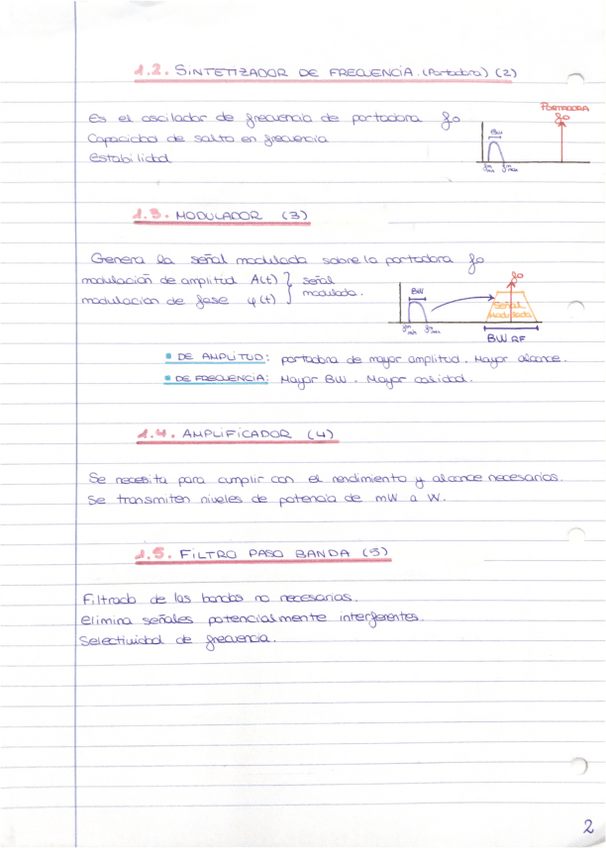 1.2. SINTETIZADOR DE FRECUENCIA. (Portadora) (2)
PORTADORA
fo
Es el oscilador de frecuencia de portadora fo
Capacidad de salto en frecuencia
Estabilidad
BW
fmin fmax
1.3. MODULADOR (3)
Genera la señal modulada sobre la portadora fo
modulación de amplitud A(t) } señal
modulación de fase φ(t) } modulada.
fo
BW
Señal
Modulada
fmin fmax
BW RF
• DE AMPLITUD: portadora de mayor amplitud. Mayor alcance.
• DE FRECUENCIA: Mayor BW. Mayor calidad.
1.4. AMPLIFICADOR (4)
Se necesita para cumplir con el rendimiento y alcance necesarios.
Se transmiten niveles de potencia de mW a W.
1.5. FILTRO PASO BANDA (5)
Filtrado de las bandas no necesarias.
Elimina señales potencialmente interferentes.
Selectividad de frecuencia.
2